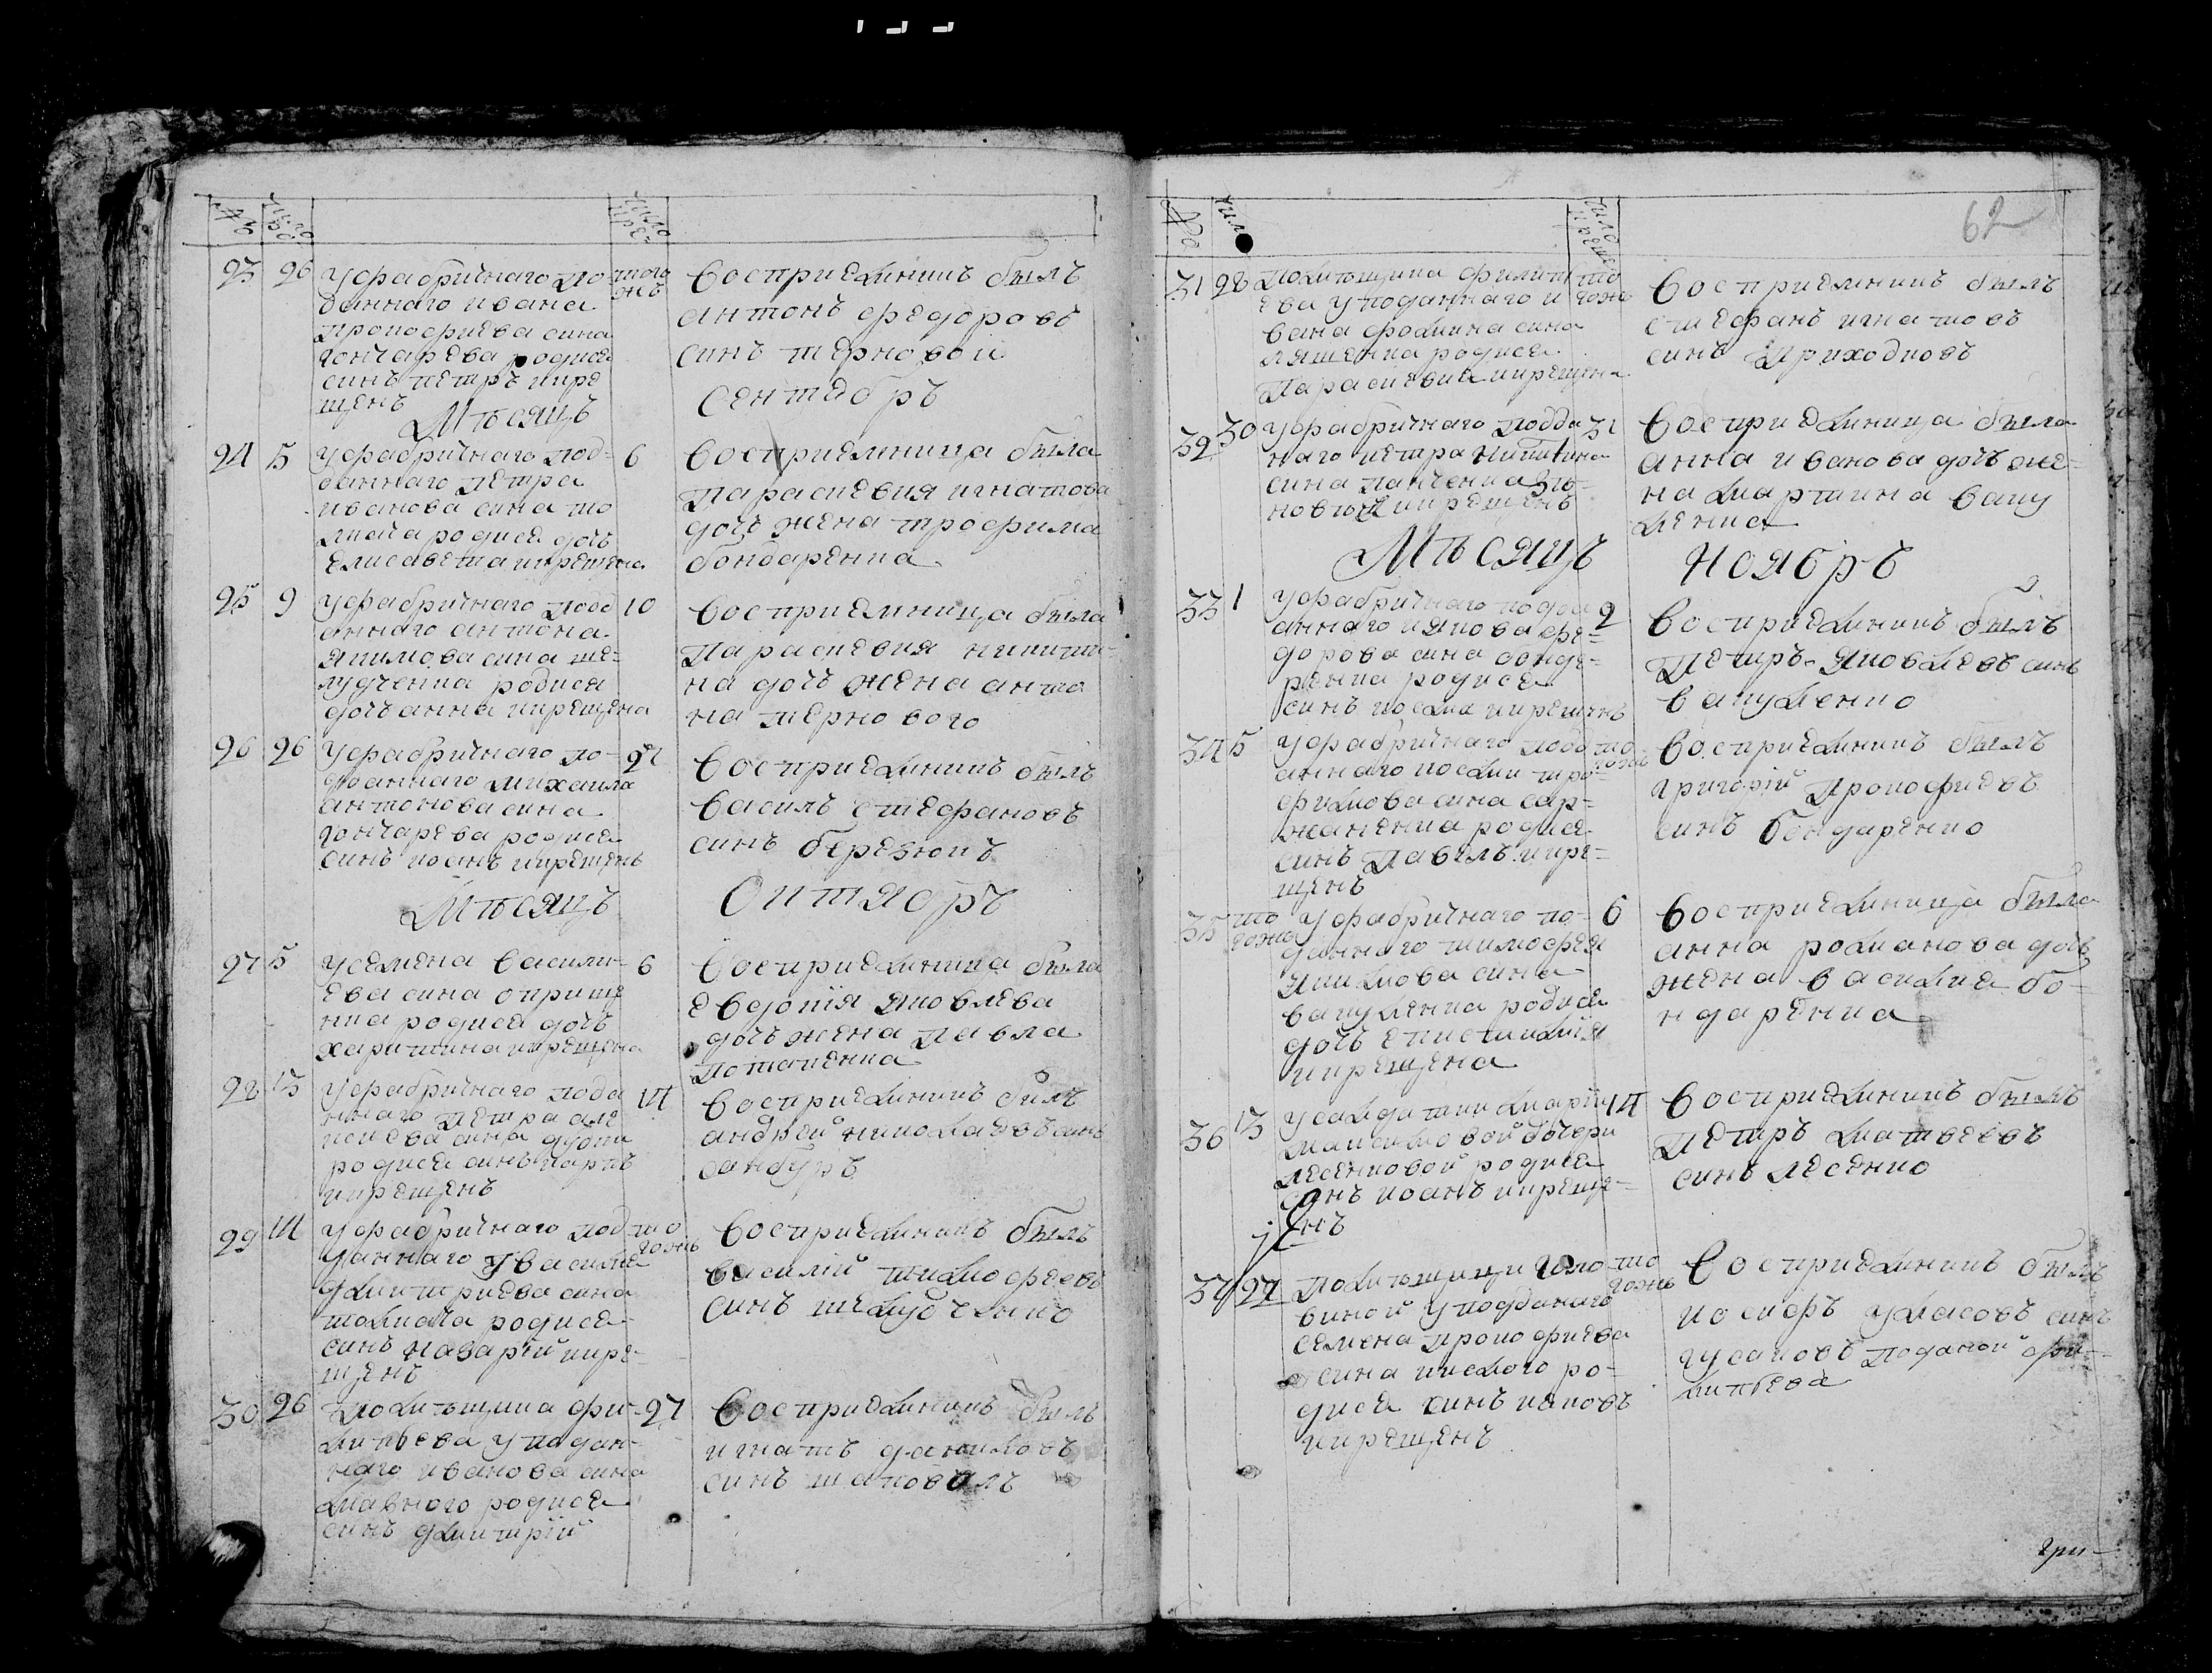 №
число
число крещ
23 26 у фабричного по- того
данного ивана жъ
прокофиева сина
гончарева родися
синъ петръ и кре
щенъ
восприемникъ былъ
антонъ федоровъ
синъ терновои
Мѣсяцъ Сентябръ
24 5 у фабричного под- 6
данного петра
иванова сина то
лмача родися дочь
Елисавета и крещена
восприемница была
параскевия игнатова
дочь жена трофима
бондаренка
25 9 у фабричного подд 10
анного антона
якимова сина ше-
лудченка родися
дочь анна и крещена
восприемница была
параскевия никити-
на дочь жена анто
на тернового
26 26 у фабричного по- 27
дданного михаила
антонова сина
гончарева родися
синъ иоанъ и крещенъ
восприемникъ былъ
василъ стефановъ
синъ березнюкъ
Мѣсяцъ Октябръ
27 5 у семена васили- 6
ева сина
родися дочь
харитина и крещена
восприемница была
евдокiя яковлева
дочь жена павла
потапенка
28 13 у фабричного пода 14
нного петра але
ксиева сина
родися синъ карпъ
и крещенъ
восприемникъ былъ
андрей николаевъ синъ
29 14 у фабричного под то
данного василия гожъ
дмитриева сина
толмача родися
синъ назарiй и кре-
щенъ
восприемникъ былъ
василiй тимофеевъ
синъ шелудченко
30 26 помѣщика фи- 27
липьева у подан-
ного иванова сина
главного родися
синъ дмитрiй
восприемникъ былъ
игнатъ даниловъ
синъ шаповалъ
62
№
число
31 28 помѣщика филип то
ева у поданного и гожъ
вана фомина сина
ляшенка родися
параскевия и крещена
восприемникъ былъ
стефанъ игнатовъ
синъ приходковъ
32 30 у фабричного подда 31
ного петра никитина
сина панченка зѣ-
новѣй и крещенъ
восприемница была
анна иванова дочь же-
на мартина ваку
ленка
Мѣсяцъ Ноябръ
33 1 у фабричного подда 2
анного иякова фе-
дорова сина бонде-
ренка родися
синъ косма и крещенъ
восприемникъ былъ
петръ яковлевъ синъ
вакуленко
34 5 у фабричного подд то
анного косми тро- гожъ
фимова сина сер-
жаненка родися
синъ павелъ и кре-
щенъ
восприемникъ былъ
григорiй прокофиевъ
синъ бондаренко
35 то у фабричного по- 6
гожъ данного тимофея
якимова сина
вакуленка родися
дочь епистимiя
и крещена
восприемница была
анна романова дочь
жена василия бо-
ндаренка
36 13 у салдатки марiи 14
максимовой дочери
лесенковой родися
синъ иоанъ и креще-
нъ
восприемникъ былъ
петръ матвеевъ
синъ лесенко
37 27 помѣщици голо то
виной у подданого гожъ
семена прокофиева
сина кислого ро-
дися синъ ияковъ
и крещенъ
восприемникъ былъ
иосифъ власовъ синъ
гусаковъ поданой фи-
липьева
гри-